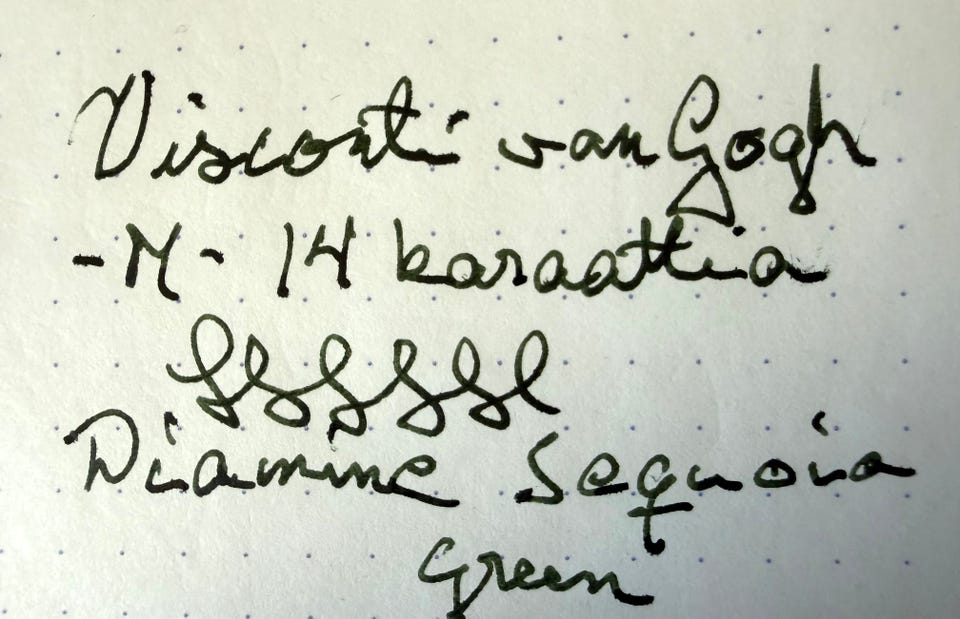 Visconti van Gogh
-M- 14 karaattia
Diamine Sequoia
Green